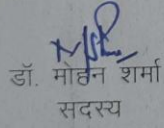 डॉ. मोहन शर्मा
सदस्य